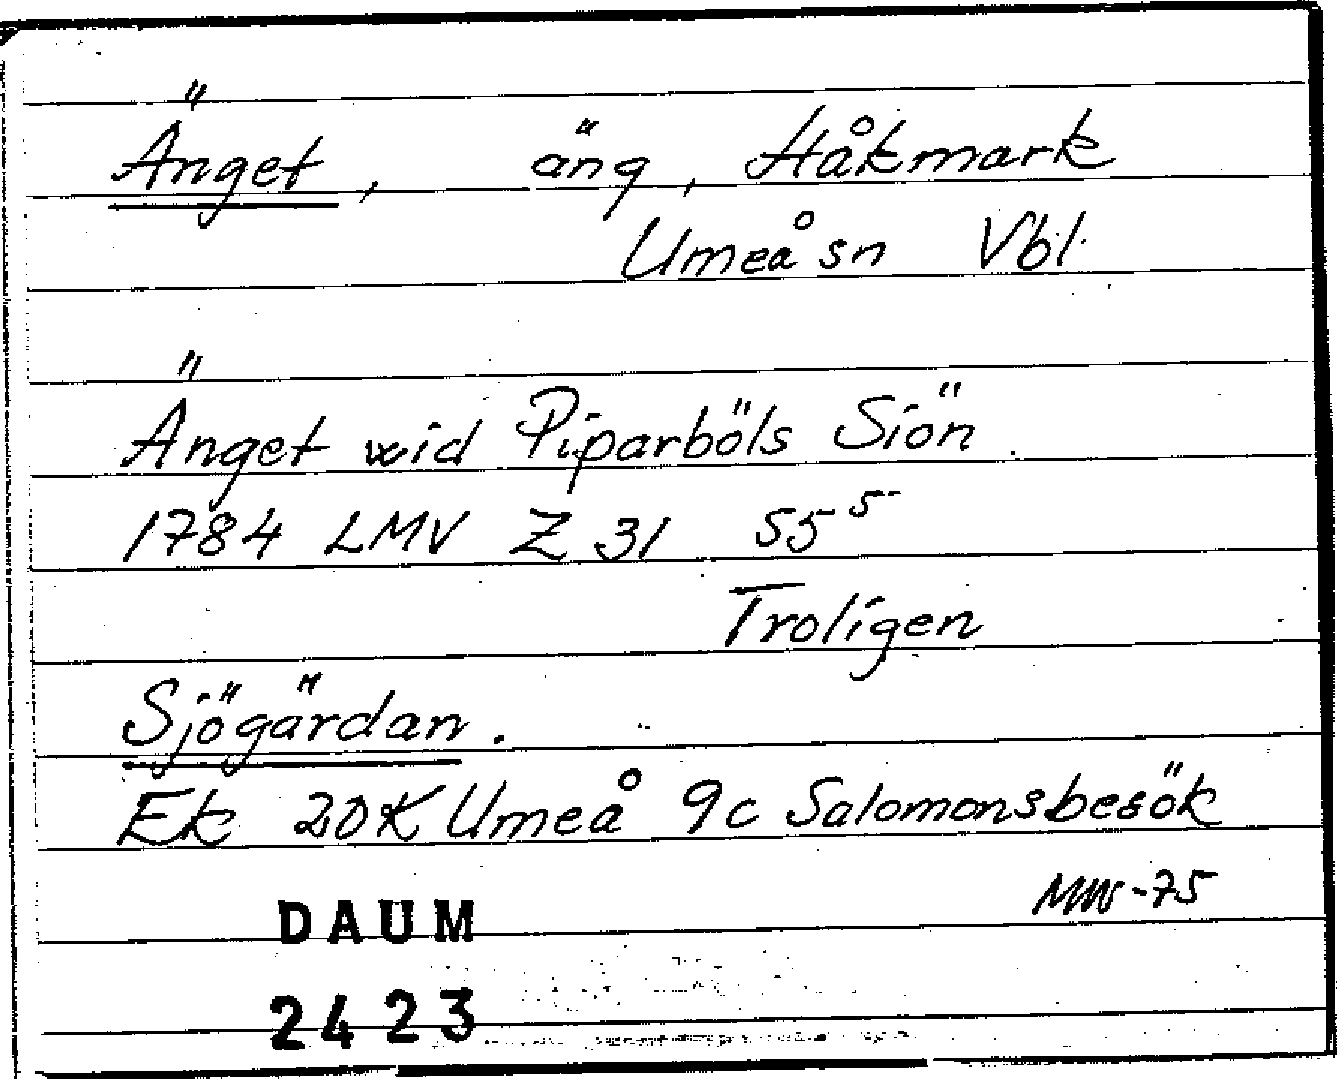 Änget, äng, Håkmark
Umeå sn Vbl.
Änget wid Piparböls Siön.
1784 LMV Z 31 55⁵
Troligen
Sjögärdan.
Ek 20K Umeå 9c Salomonsbesök
MW-75
DAUM
2423